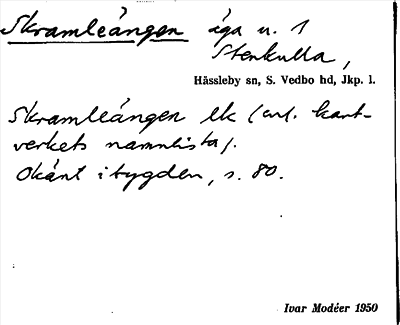 Skramleängen äga u. 1
Stenkulla,
Hässleby sn, S. Vedbo hd, Jkp. l.
Skramleängen lk (enl. kart-
verkets namnlista).
Okänt i bygden, s. 80.
Ivar Modéer 1950